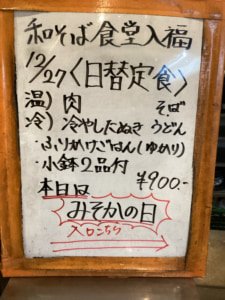 和そば食堂入福
12/27〈日替定食〉
温）肉 そば
冷）冷やしたぬき うどん
・ふりかけごはん（ゆかり）
・小鉢2品付
本日は ¥900.-
みそかの日
入口こちら